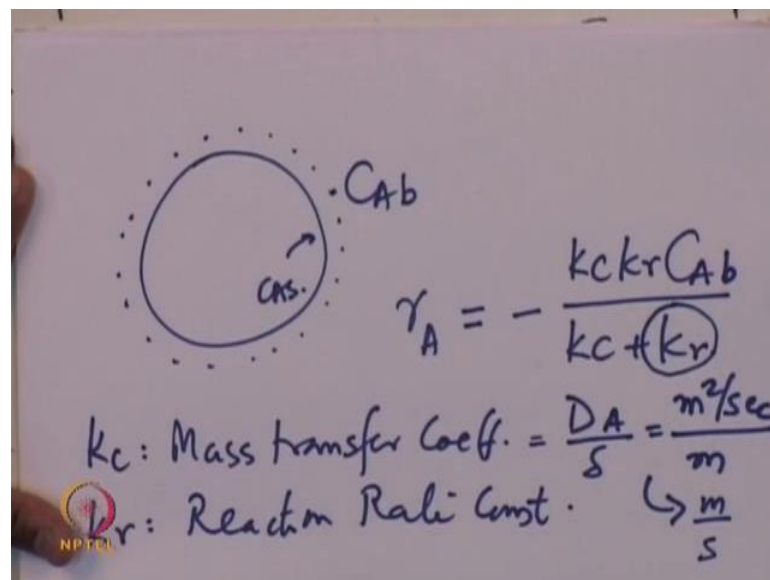 CAb
CAs.
r_A = - kc kr CAb / kc + kr
kc: Mass transfer Coeff. = DA / δ = m²/sec / m
kr: Reaction Rate Const. ↳ m/s
NPTEL